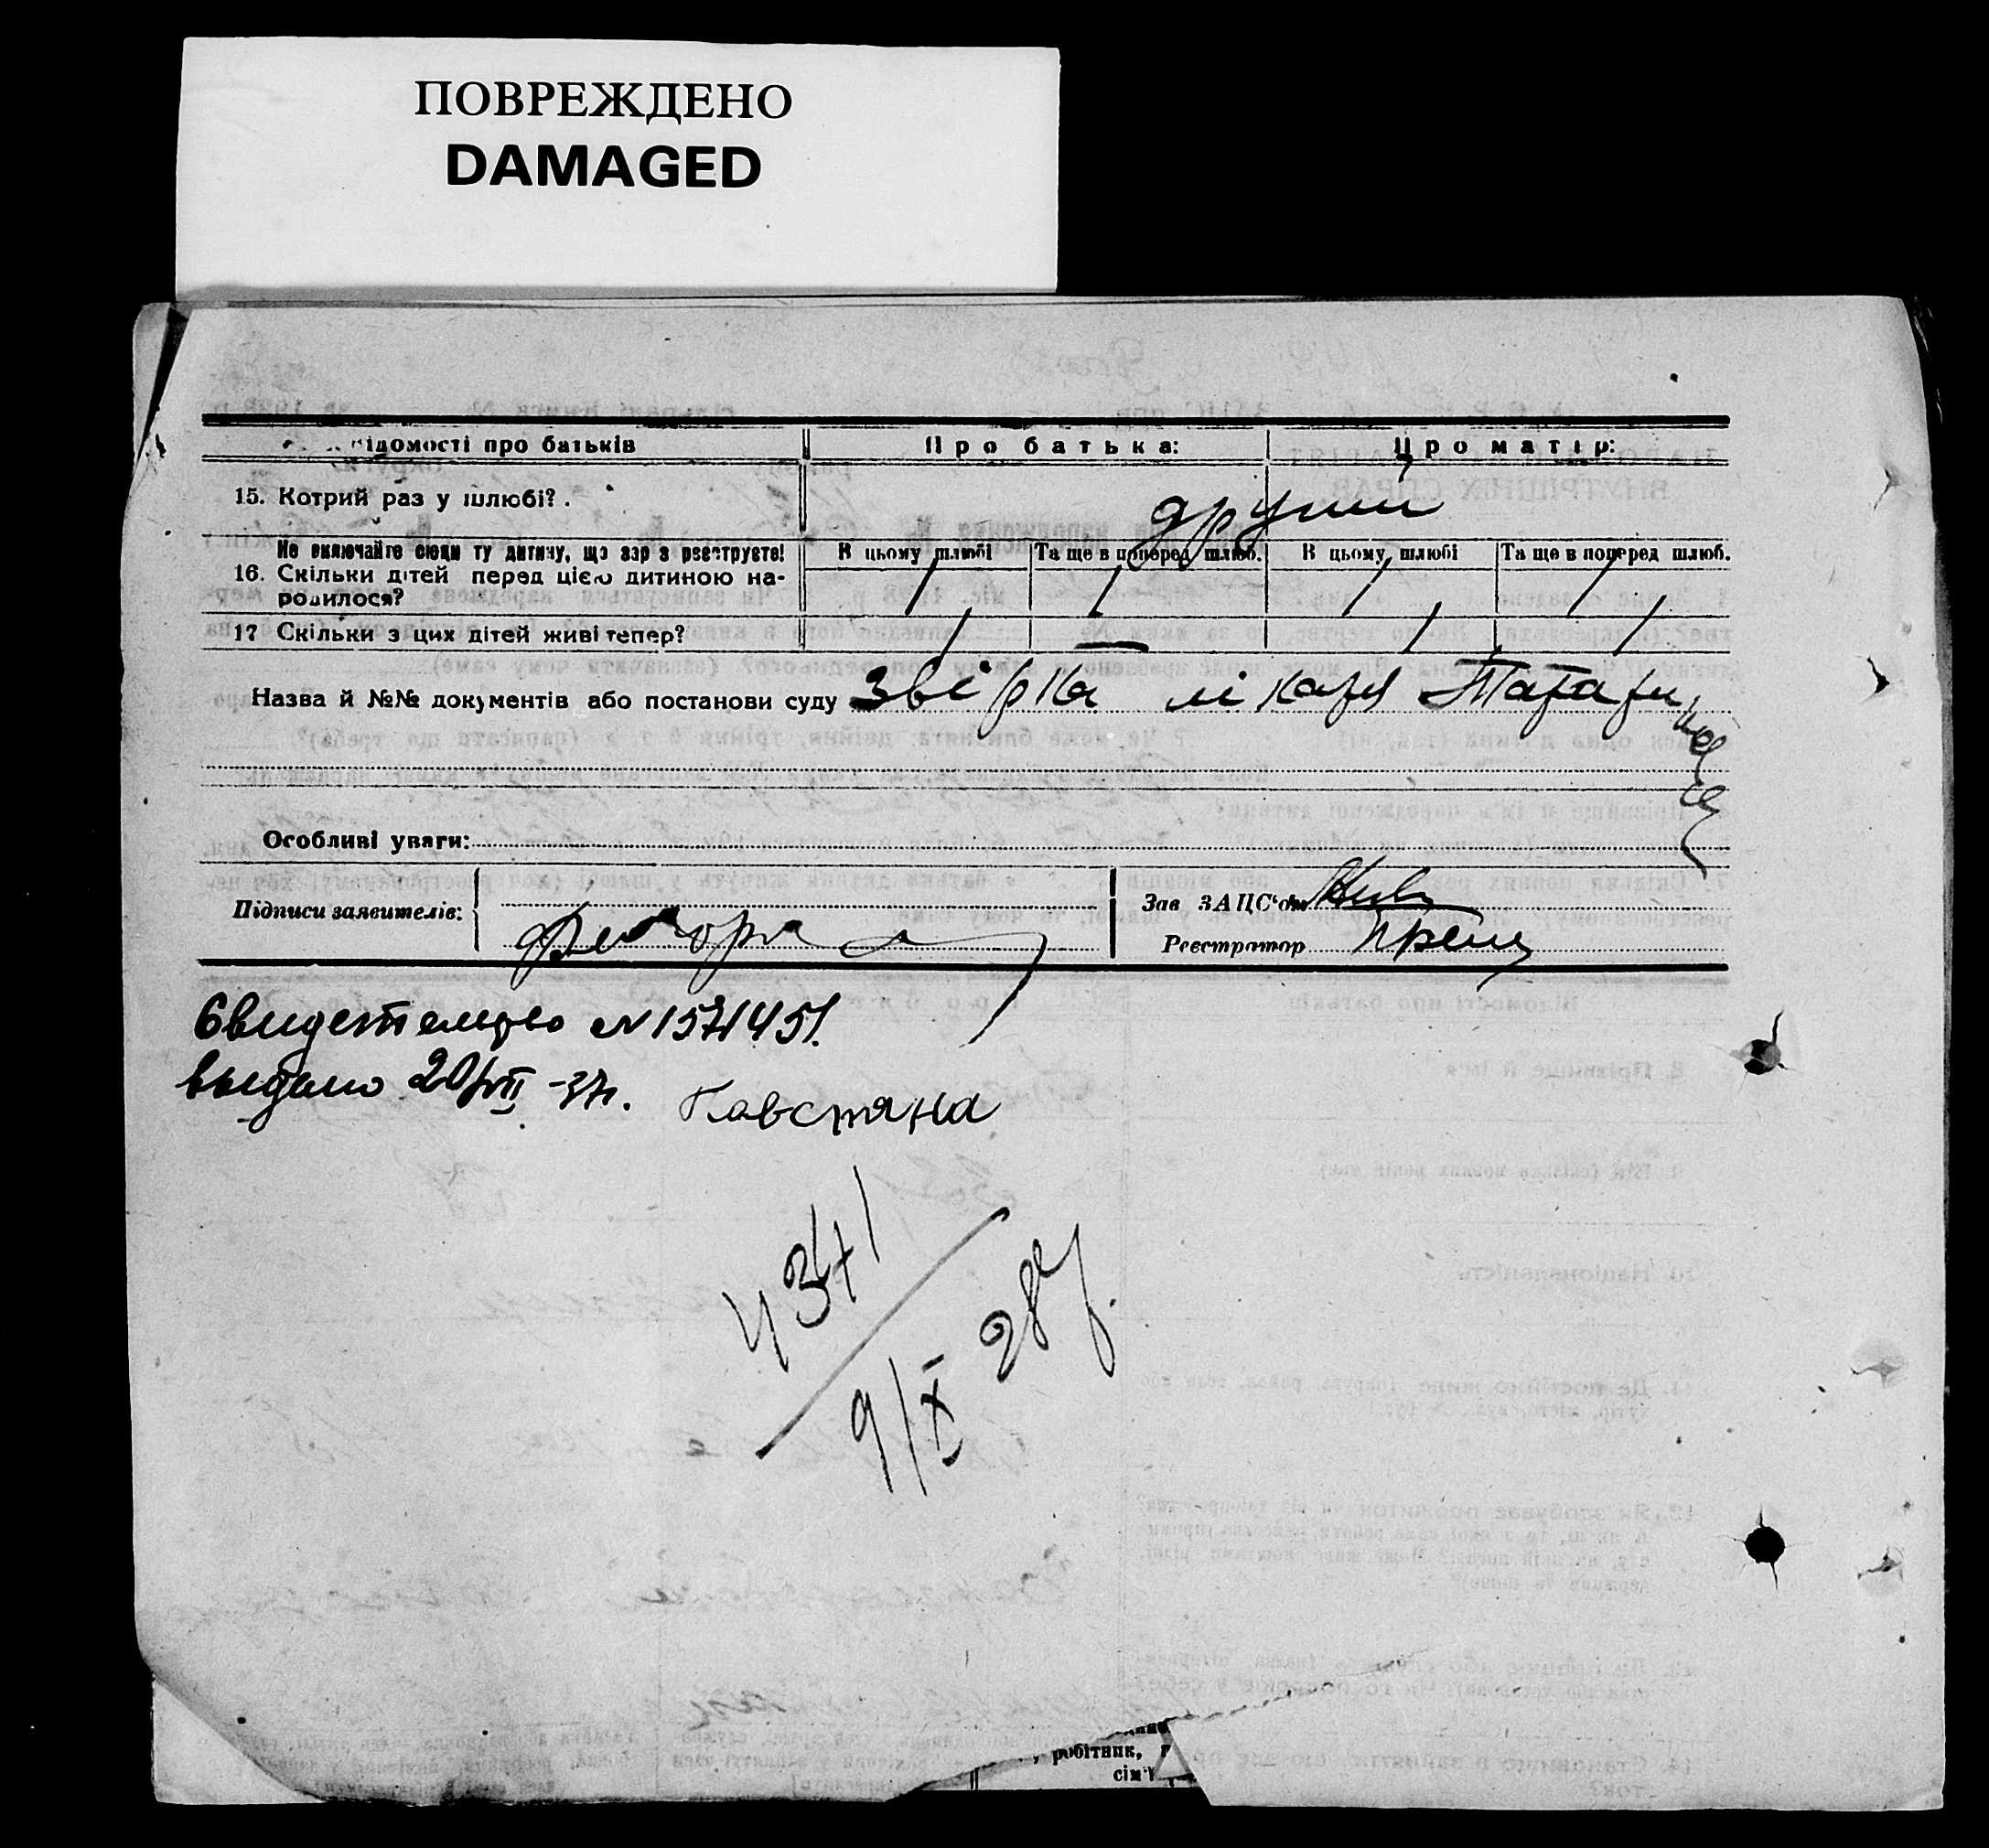 ПОВРЕЖДЕНО
DAMAGED
ідомості про батьків
Про батька:
Про матір:
15. Котрий раз у шлюбі?.
другий
Не включайте сюди ту дитину, що зараз реєструєте!
16. Скільки дітей перед цією дитиною на-
родилося?
В цьому шлюбі
Та ще в поперед шлюб.
В цьому шлюбі
Та ще в поперед шлюб.
17 Скільки з цих дітей живі тепер?
Назва й №№ документів або постанови суду
лікаря
Особливі уваги:
Підписи заявителів:
Зав ЗАЦС'ом
Реєстратор
Свидетельство N 1571451.
выдано 20/VII -37г.
4371
9/X 28р.
робітник,
сім'ї